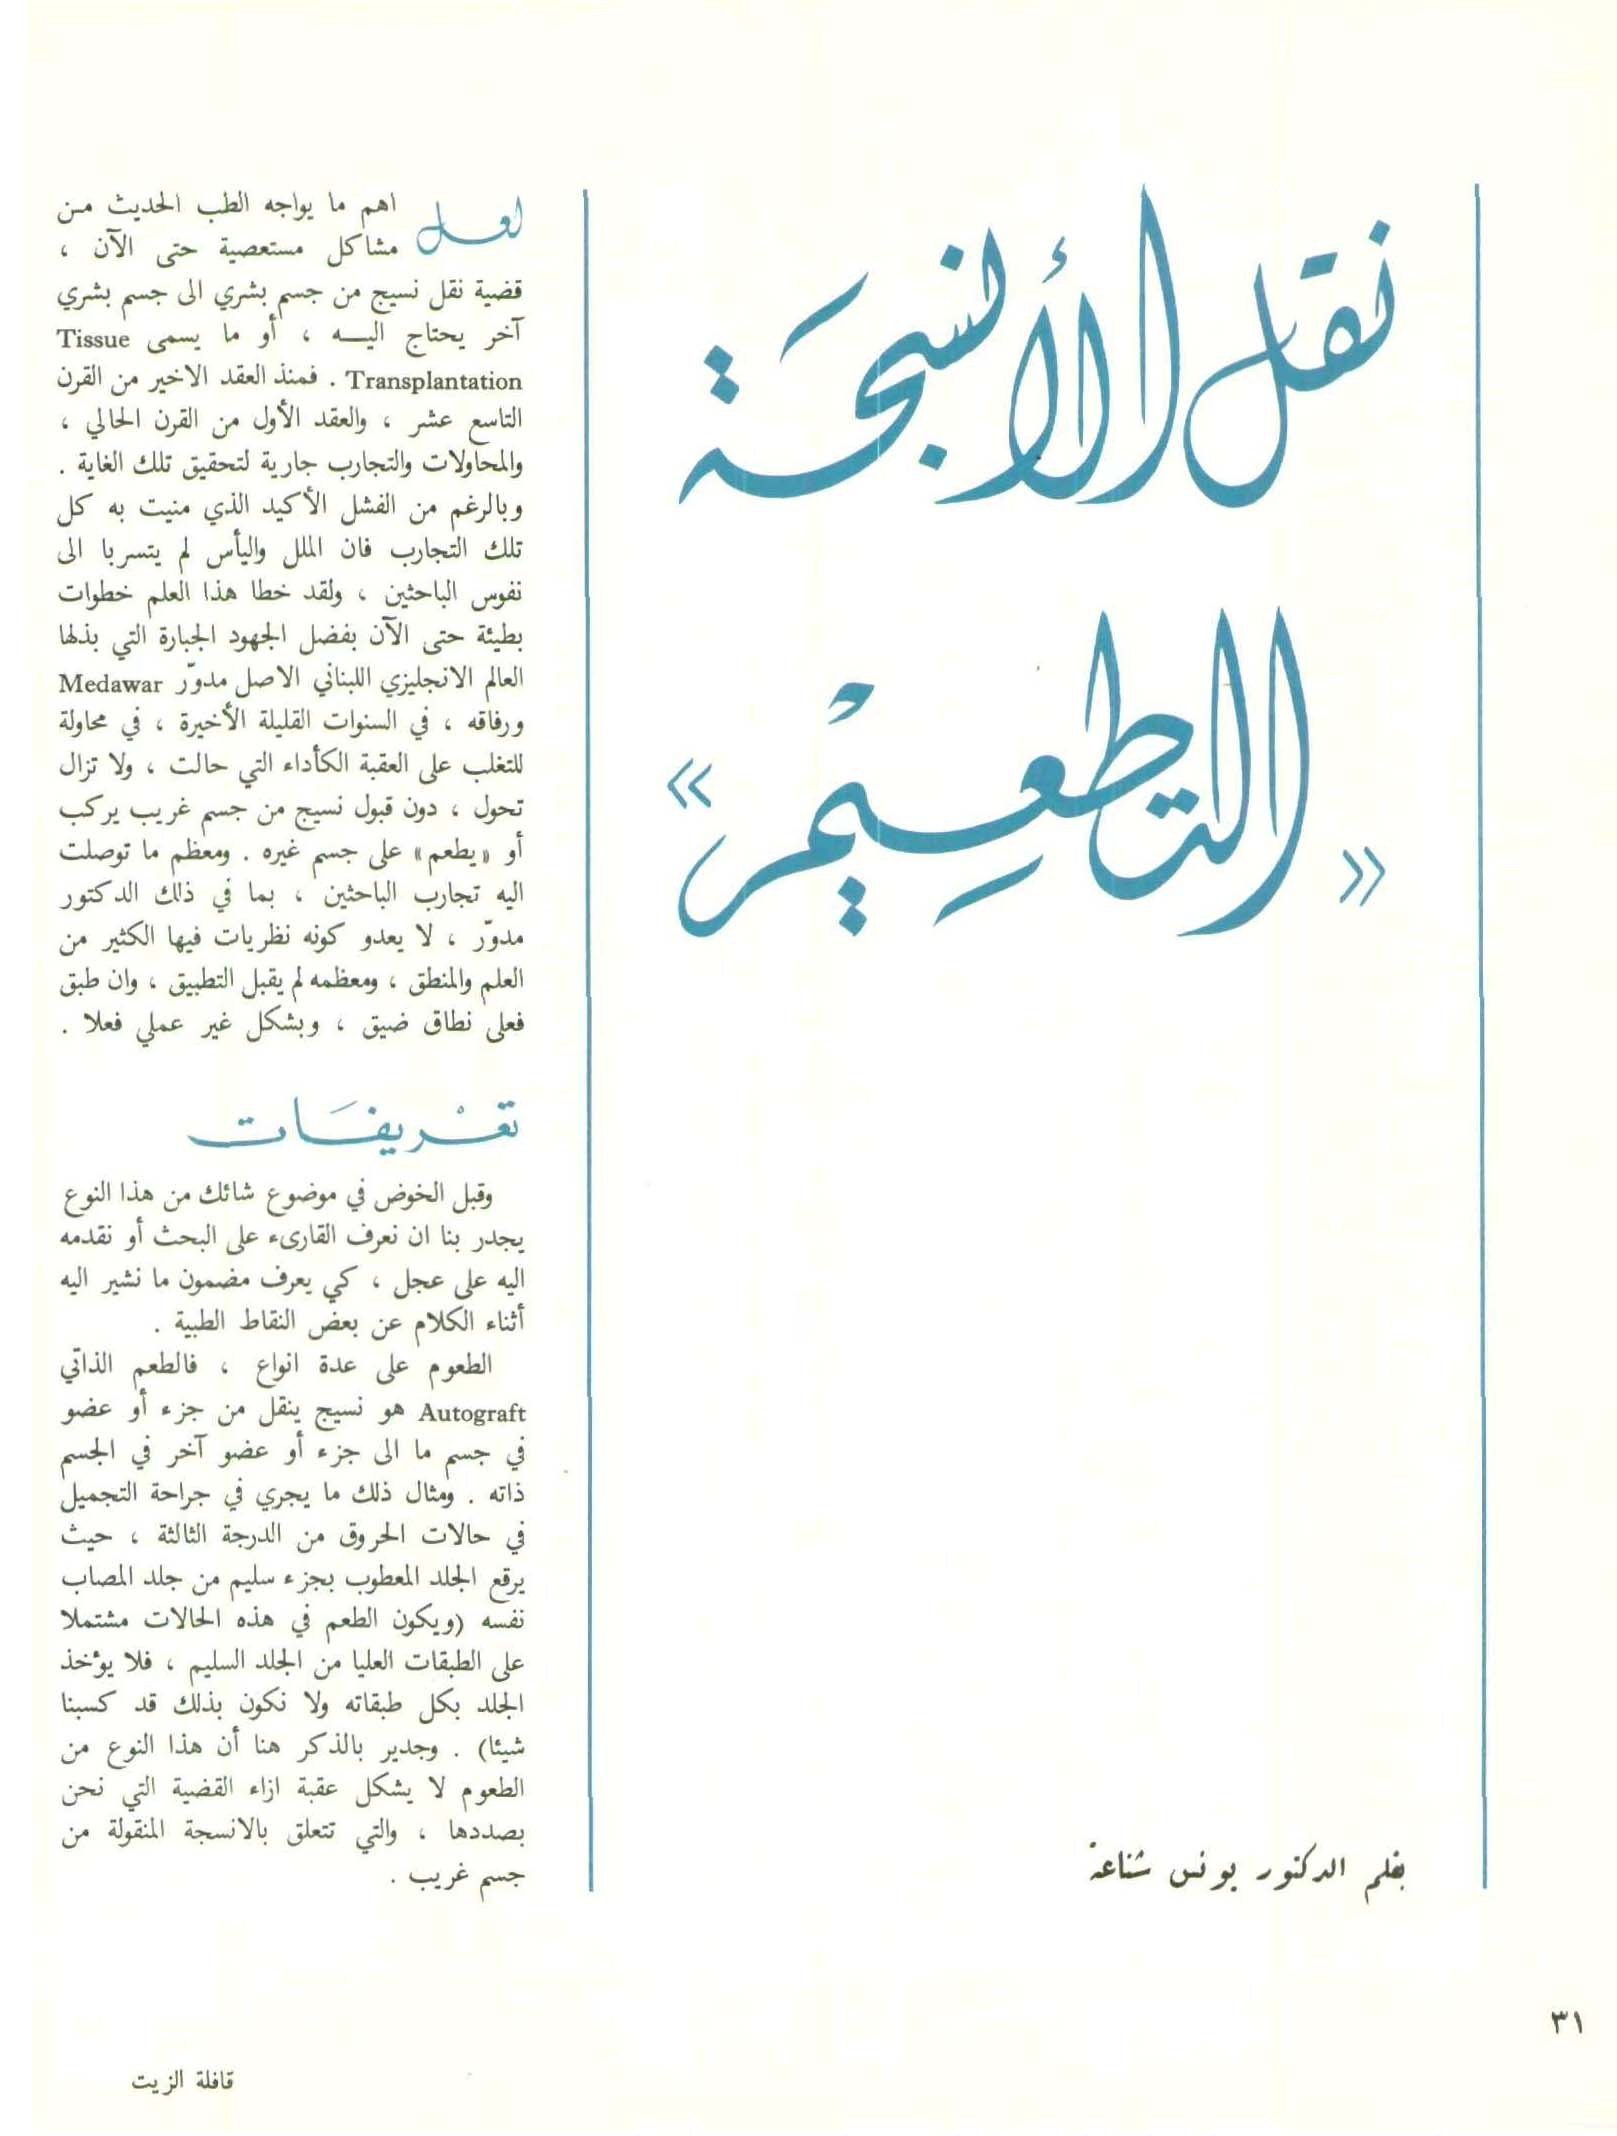 نقل الأنسجة
« التطعيْمُ »
بقلم الدكتور يونس شناعة
لعل اهم ما يواجه الطب الحديث من
مشاكل مستعصية حتى الآن ،
قضية نقل نسيج من جسم بشري الى جسم بشري
آخر يحتاج اليه ، أو ما يسمى Tissue
Transplantation . فمنذ العقد الاخير من القرن
التاسع عشر ، والعقد الأول من القرن الحالي ،
والمحاولات والتجارب جارية لتحقيق تلك الغاية .
وبالرغم من الفشل الأكيد الذي منيت به كل
تلك التجارب فان الملل واليأس لم يتسربا الى
نفوس الباحثين ، ولقد خطا هذا العلم خطوات
بطيئة حتى الآن بفضل الجهود الجبارة التي بذلها
العالم الانجليزي اللبناني الاصل مدوّر Medawar
ورفاقه ، في السنوات القليلة الأخيرة ، في محاولة
للتغلب على العقبة الكأداء التي حالت ، ولا تزال
تحول ، دون قبول نسيج من جسم غريب يركب
أو «يطعم» على جسم غيره . ومعظم ما توصلت
اليه تجارب الباحثين ، بما في ذلك الدكتور
مدوّر ، لا يعدو كونه نظريات فيها الكثير من
العلم والمنطق ، ومعظمه لم يقبل التطبيق ، وان طبق
فعلى نطاق ضيق ، وبشكل غير عملي فعلا .
تعْريفَات
وقبل الخوض في موضوع شائك من هذا النوع
يجدر بنا ان نعرف القارىء على البحث أو نقدمه
اليه على عجل ، كي يعرف مضمون ما نشير اليه
أثناء الكلام عن بعض النقاط الطبية .
الطعوم على عدة انواع ، فالطعم الذاتي
Autograft هو نسيج ينقل من جزء أو عضو
في جسم ما الى جزء أو عضو آخر في الجسم
ذاته . ومثال ذلك ما يجري في جراحة التجميل
في حالات الحروق من الدرجة الثالثة ، حيث
يرقع الجلد المعطوب بجزء سليم من جلد المصاب
نفسه (ويكون الطعم في هذه الحالات مشتملا
على الطبقات العليا من الجلد السليم ، فلا يؤخذ
الجلد بكل طبقاته ولا نكون بذلك قد كسبنا
شيئا) . وجدير بالذكر هنا أن هذا النوع من
الطعوم لا يشكل عقبة ازاء القضية التي نحن
بصددها ، والتي تتعلق بالانسجة المنقولة من
جسم غريب .
٣١
قافلة الزيت